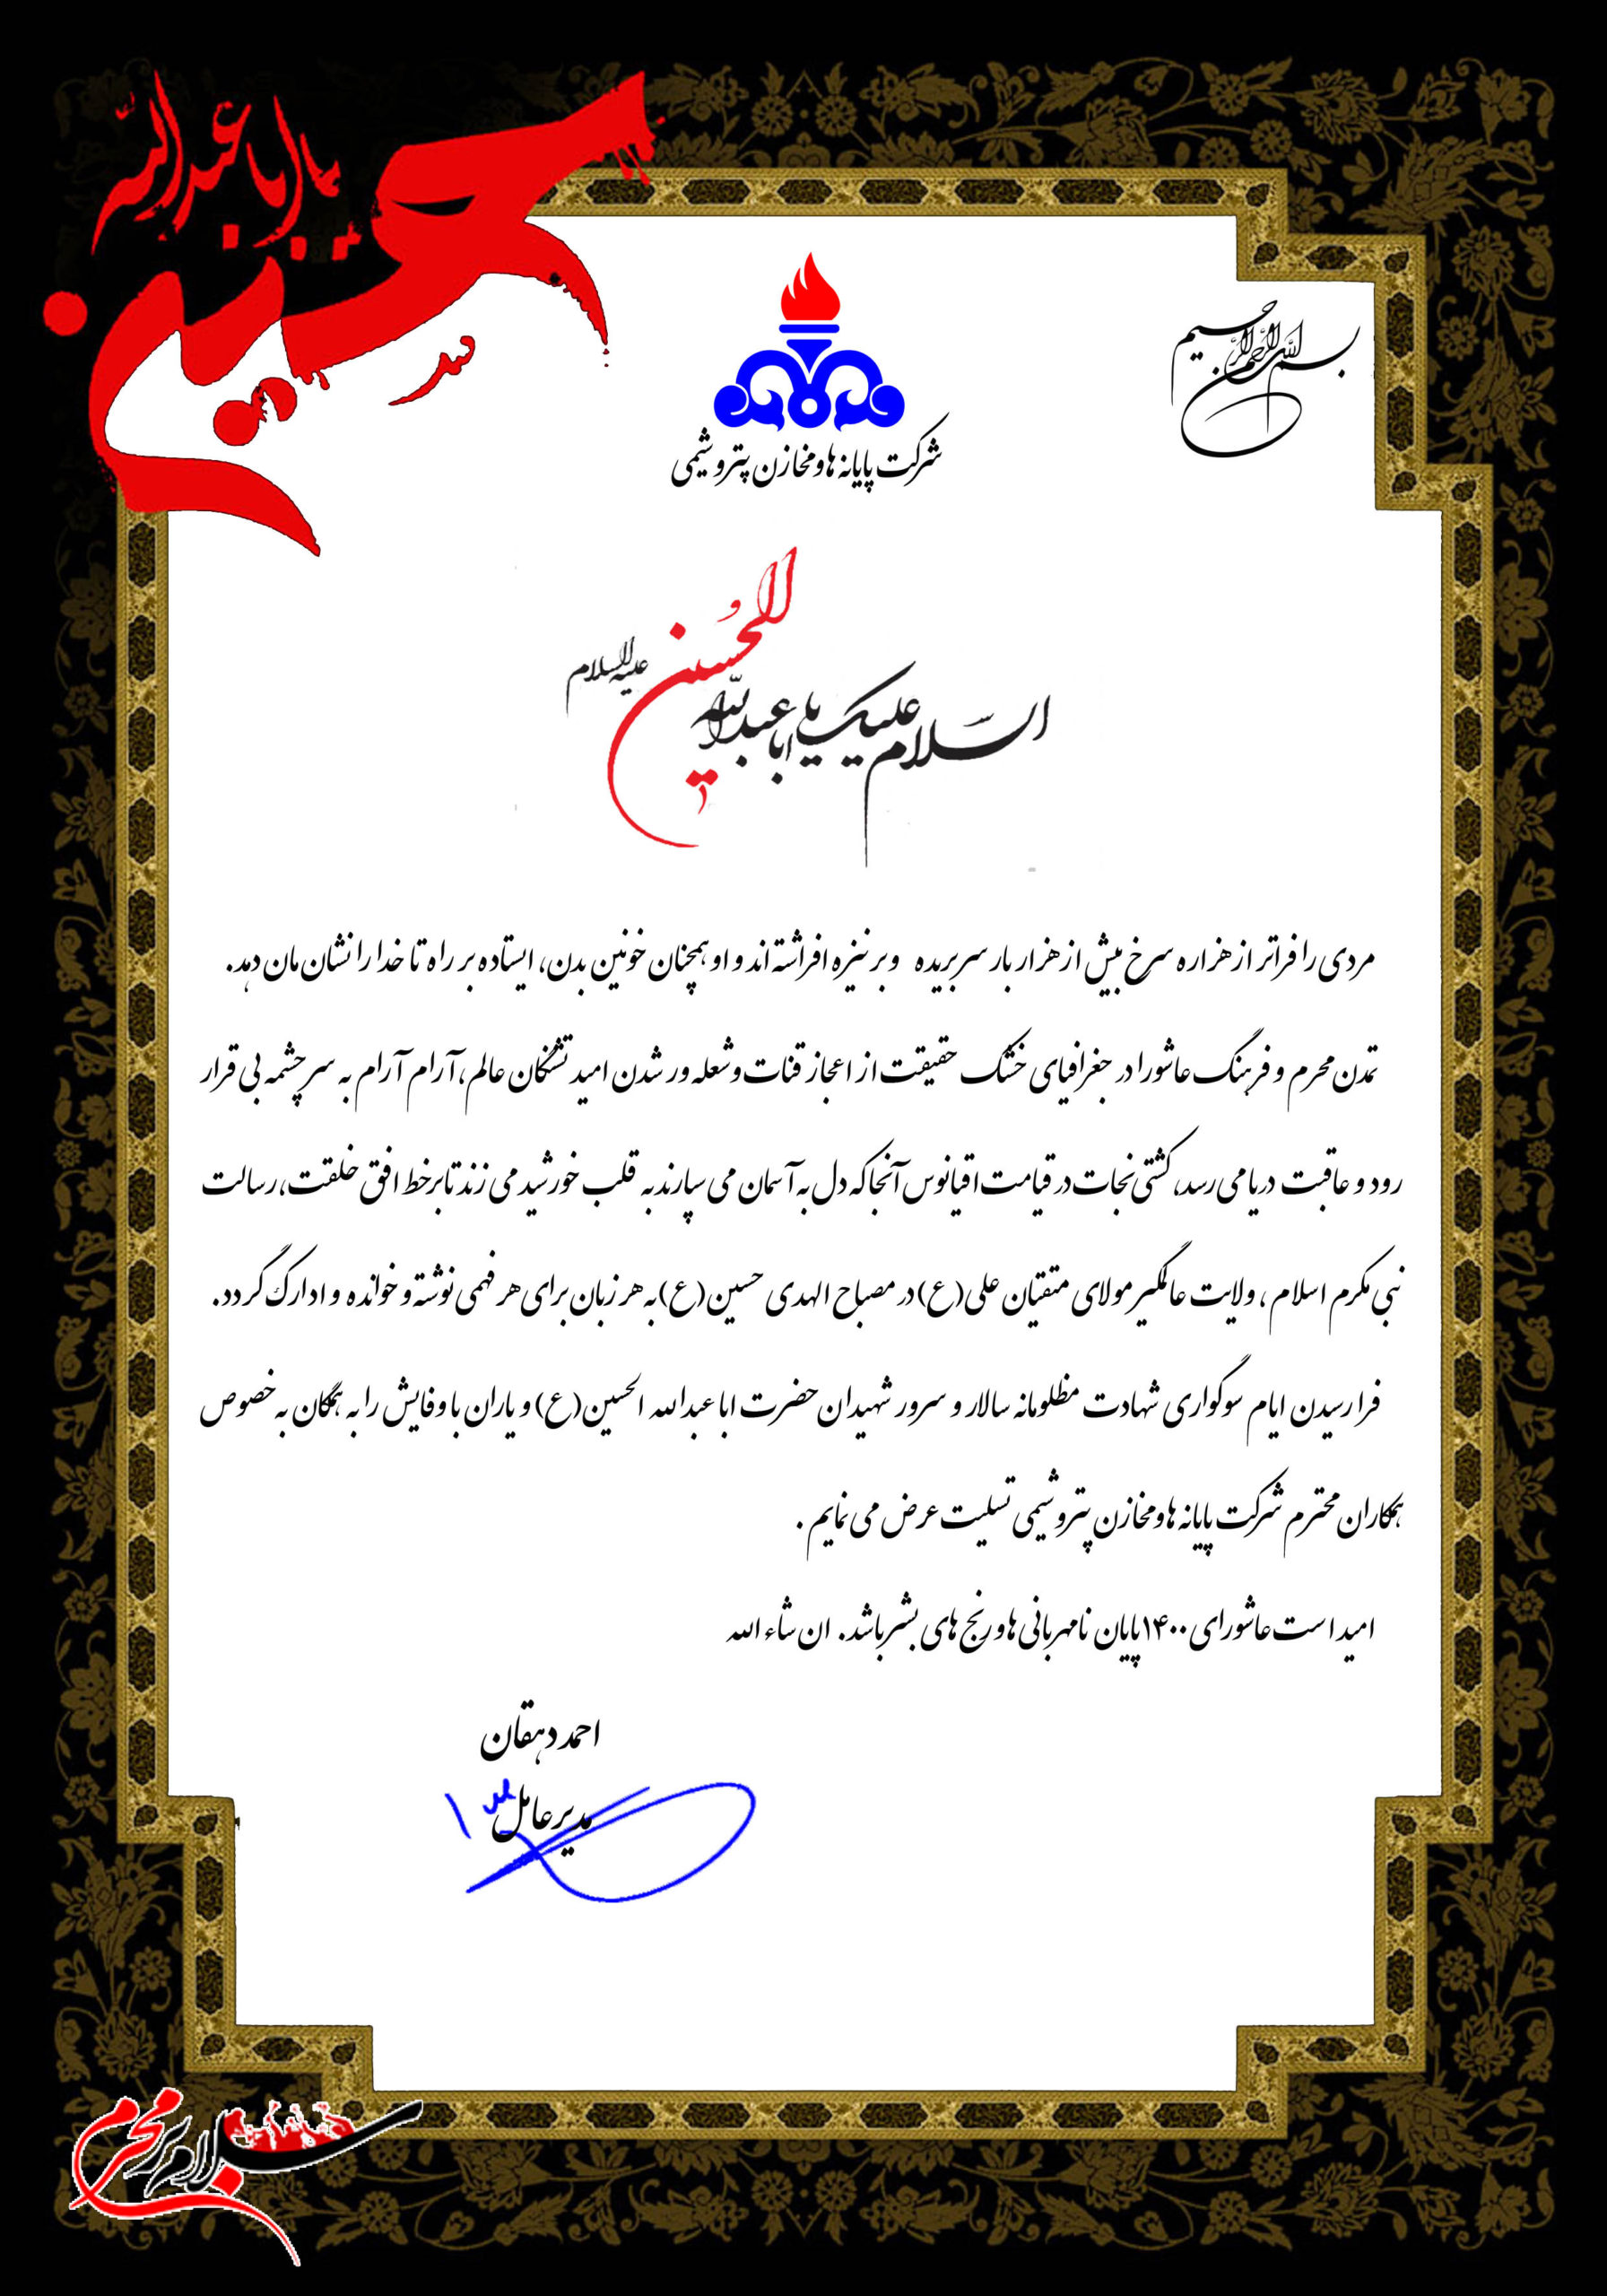 یا اباعبدالله
حسین
بسم الله الرحمن الرحیم
شرکت پایانه ها و مخازن پتروشیمی
السلام علیک یا اباعبدالله الحسین علیه السلام
مردی را فراتر از هزاره سرخ بیش از هزار بار سر بریده و بر نیزه افراشته اند و او همچنان خونین بدن، ایستاده بر راه تا خدا را نشان مان دهد.
تمدن محرم و فرهنگ عاشورا در جغرافیای خشک حقیقت از اعجاز قنات و شعله ور شدن امید تشنگان عالم، آرام آرام به سرچشمه بی قرار
رود و عاقبت دریا می رسد، کشتی نجات در قیامت اقیانوس آنجا که دل به آسمان می سپارند به قلب خورشید می زند تا بر خط افق خلقت، رسالت
نبی مکرم اسلام، ولایت عالمگیر مولای متقیان علی(ع) در مصباح الهدی حسین(ع) به هر زبان برای هر فهمی نوشته و خوانده و ادارک گردد.
فرا رسیدن ایام سوگواری شهادت مظلومانه سالار و سرور شهیدان حضرت ابا عبدالله الحسین(ع) و یاران با وفایش را به همگان به خصوص
همکاران محترم شرکت پایانه ها و مخازن پتروشیمی تسلیت عرض می نمایم.
امید است عاشورای ۱۴۰۰ پایان نامهربانی ها و رنج های بشر باشد. ان شاء الله
احمد دهقان
مدیر عامل
سلام بر محرم